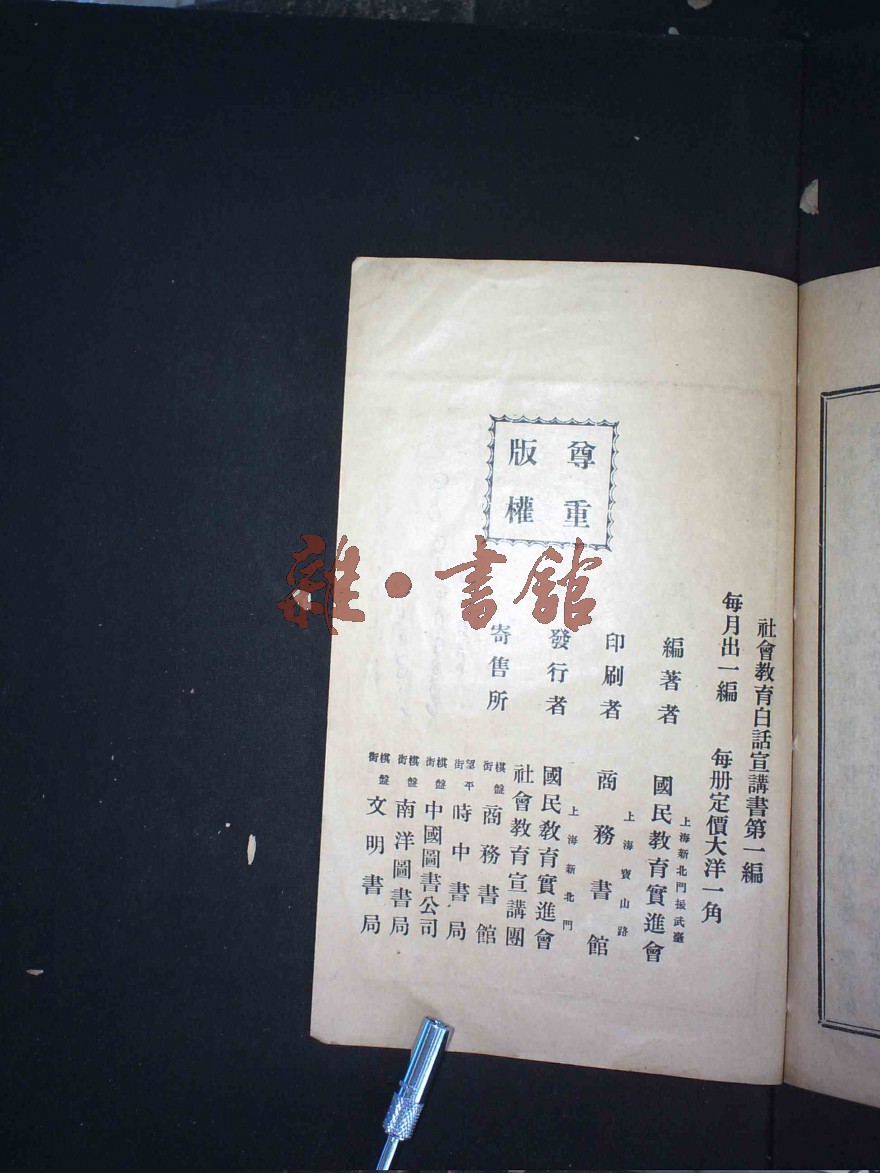 社會教育白話宣講書第一編
每月出一編 每册定價大洋一角
編著者 上海新北門振武臺 國民教育實進會
印刷者 上海寶山路 商務書館
發行者 上海新北門 國民教育實進會
社會教育宣講團
寄售所 棋盤街 商務書館
望平街 時中書局
棋盤街 中國圖書公司
棋盤街 南洋圖書局
棋盤街 文明書局
尊重
版權
雜·書館